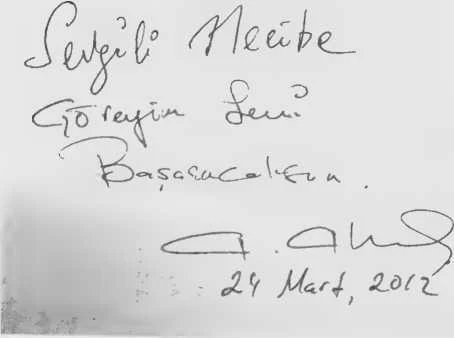 Sevgili Necibe
Göreyim Seni
Başaracaksın.
24 Mart, 2012